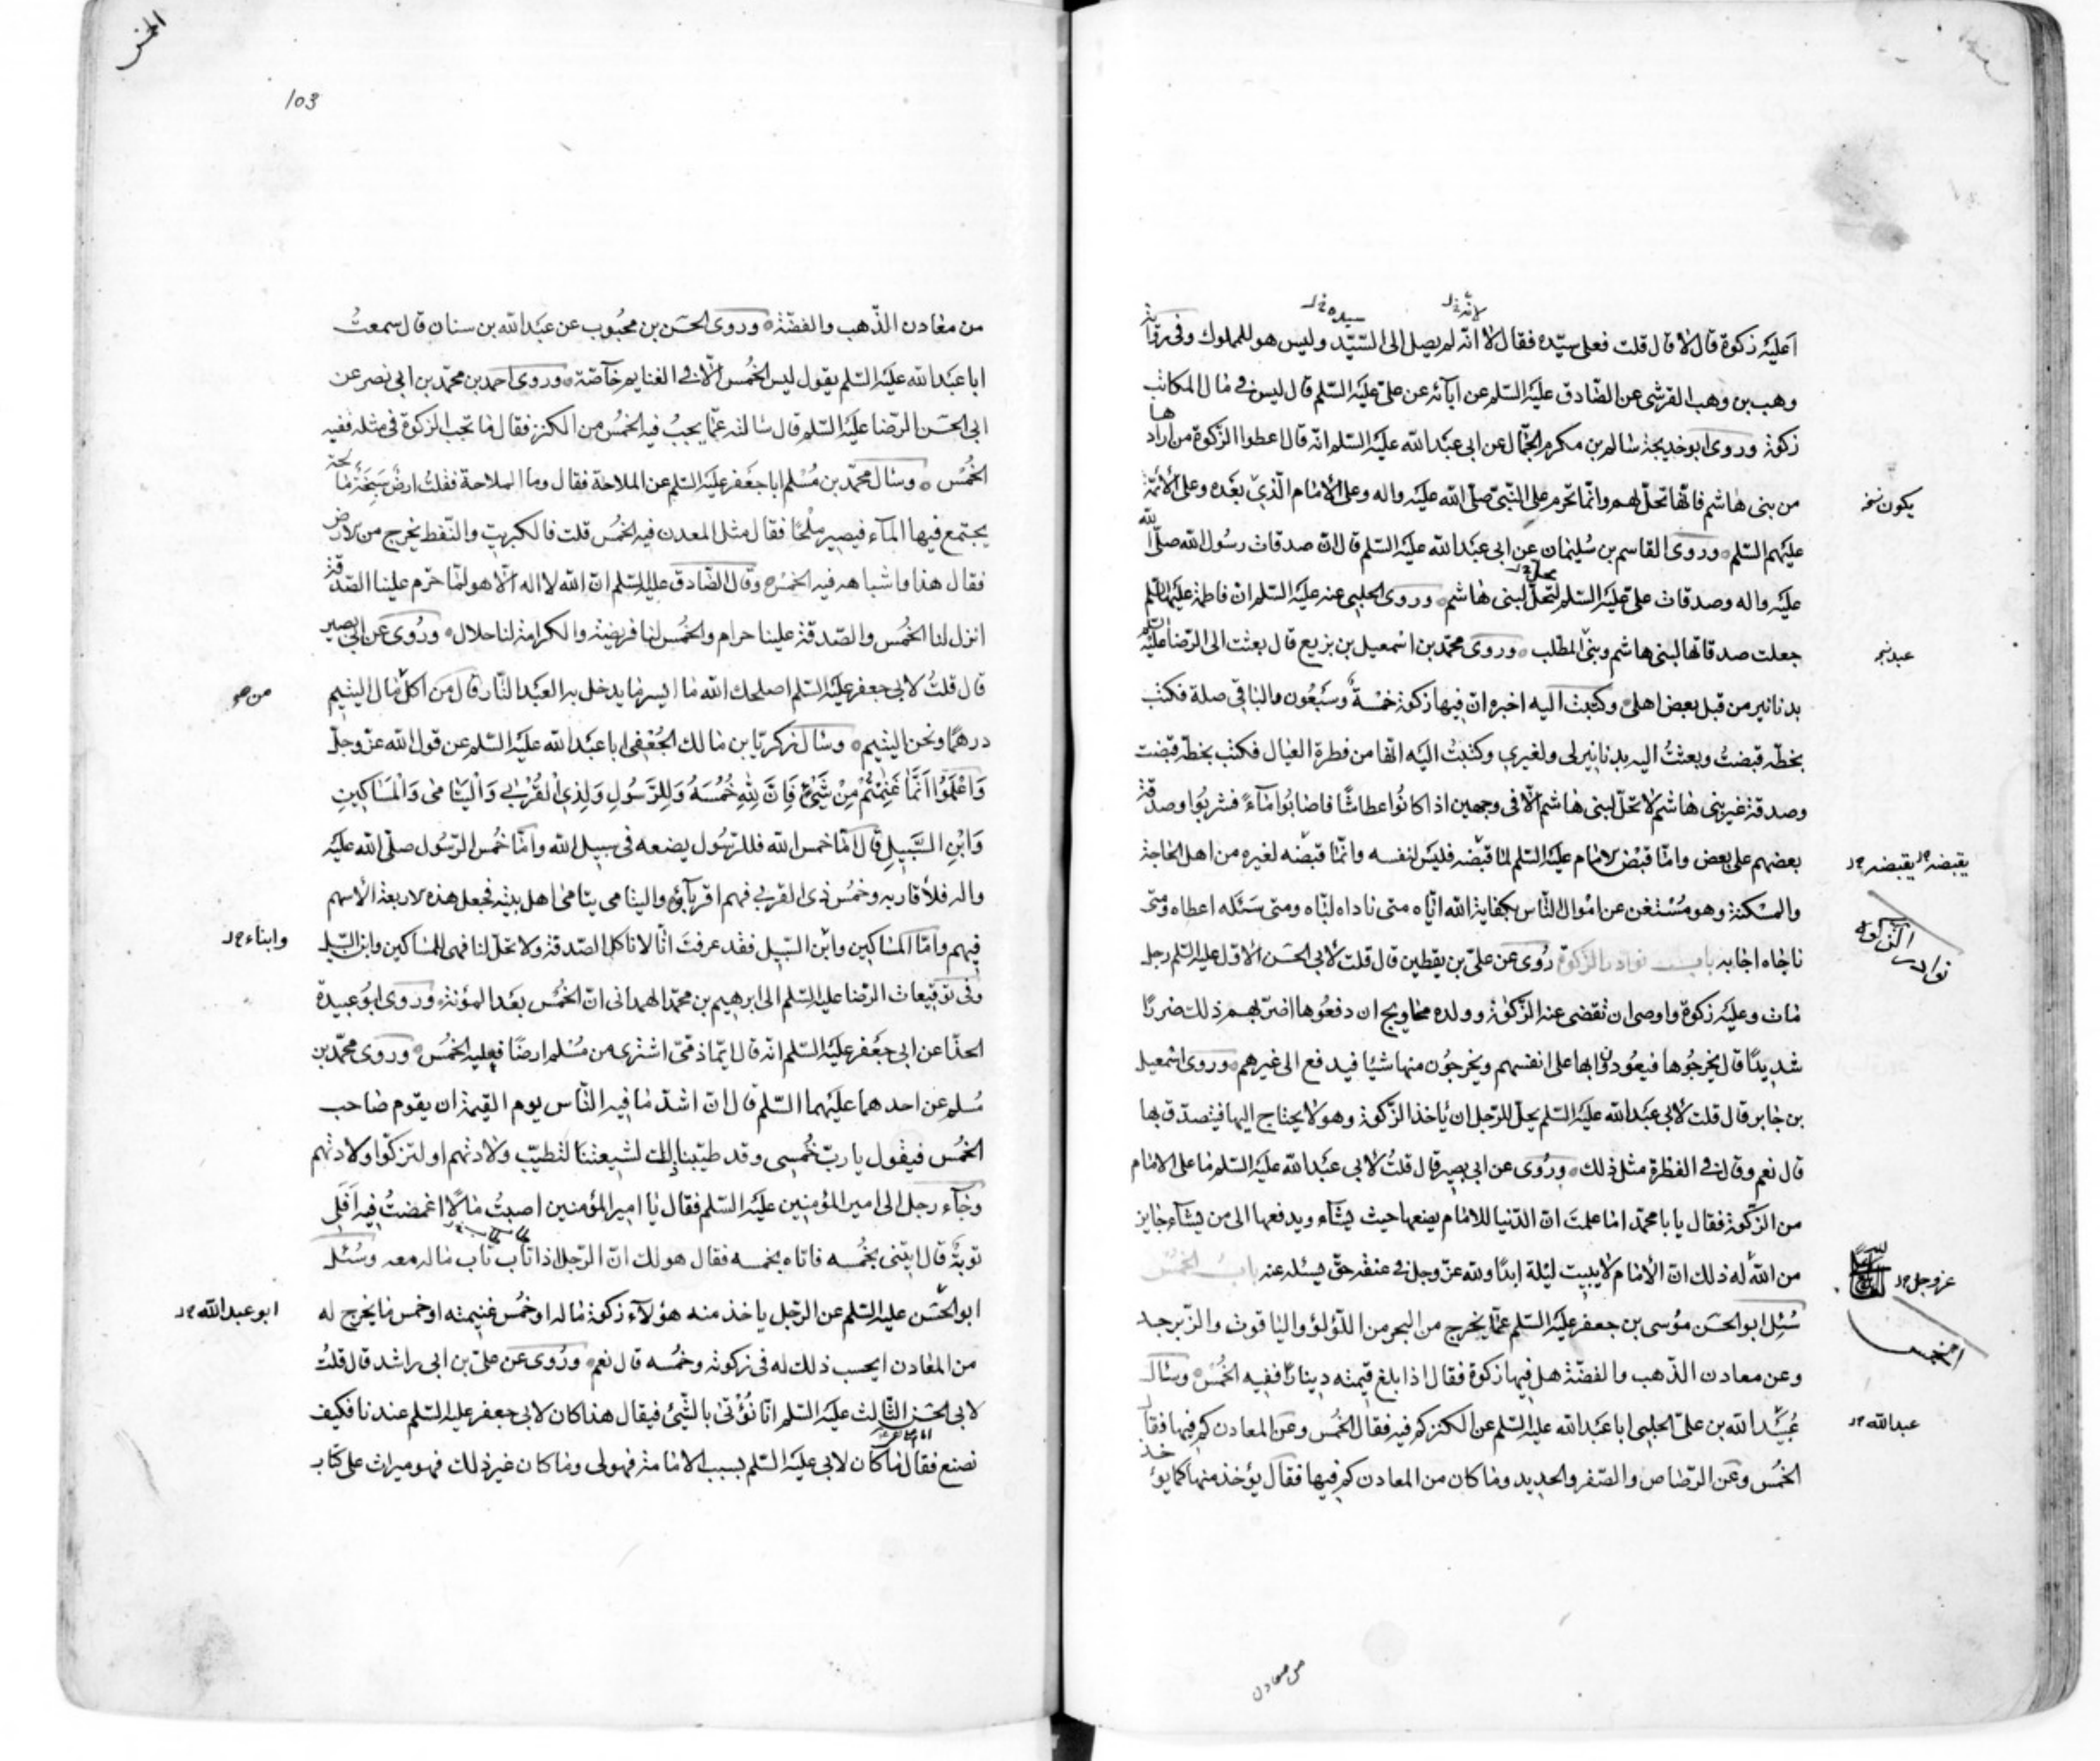 اعليه زكوة قال لا قال قلت فعلى سيّده فقال لا انّه لم يصل الى السّيّد وليس هو للمملوك وفى رواية
لانّه خ‌ل
سيده خ‌ل
وهب بن وهب القرشى عن الصّادق عليه السّلم عن آبآئه عن علىّ عليه السّلم قال ليس فى مال المكاتب
زكوة وروى ابو خديجة سالم بن مكرم الجمّال عن ابى عبد الله عليه السّلم انّه قال اعطوا الزّكوة من ارادها
من بنى هاشم فانّها تحلّ لهم وانّما تحرم على النّبىّ صلّى الله عليه واله وعلى الامام الّذى بعده وعلى الأئمّة
يكون نسخه
عليهم السّلم وروى القاسم بن سليمان عن ابى عبد الله عليه السّلم قال انّ صدقات رسول الله صلّى الله
عليه واله وصدقات علىّ عليه السّلم لتحلّ لبنى هاشم وروى الحلبى عنه عليه السّلم ان فاطمة عليها السّلم
تحلّ خ‌ل
جعلت صدقاتها لبنى هاشم وبنى المطّلب وروى محمّد بن اسمعيل بن بزيع قال بعثت الى الرّضا عليه السّلم
بدنانير من قبل بعض اهلى وكتبت اليه اخبره انّ فيها زكوة خمسة وسبعون والباقى صلة فكتب
بخطّه قبضتُ وبعثتُ اليه بدنانير لى ولغيرى وكتبتُ اليه انّها من فطرة العيال فكتب بخطّه قبضت
وصدقة غير بنى هاشم لا تحلّ لبنى هاشم الّا فى وجهين اذا كانوا عطاشًا فاصابوا مآءً فشربوا وصدقة
بعضهم على بعض وامّا قبض الامام عليه السّلم لما قبضه فليس لنفسه وانّما قبضه لغيره من اهل الحاجة
يقبضه خ‌ل يقبضه خ‌ل
والمسكنة وهو مستغن عن اموال النّاس بكفاية الله ايّاه متى ناداه لبّاه ومتى سئله اعطاه ومتى
ناجاه اجابه باب نوادر الزكوة روى عن علىّ بن يقطين قال قلت لابى الحسن الاوّل عليه السّلم رجل
نوادر الزكوة
مات وعليه زكوة واوصى ان تقضى عنه الزّكوة وولده محاويج ان دفعوها اضرّ بهم ذلك ضررًا
شديدًا قال يخرجوها فيعودون بها على انفسهم ويخرجون منها شيئا فيدفع الى غيرهم وروى اسمعيل
بن جابر قال قلت لابى عبد الله عليه السّلم يحلّ للرّجل ان ياخذ الزّكوة وهو لا يحتاج اليها فيتصدّق بها
قال نعم وقال فى الفطرة مثل ذلك وروى عن ابى بصير قال قلتُ لابى عبد الله عليه السّلم ما على الامام
من الزّكوة فقال يا با محمّد اما علمت انّ الدّنيا للامام يضعها حيث يشآء ويدفعها الى من يشآء جايز
من الله له ذلك انّ الأمام لا يبيت ليلة ابدًا ولله عزّ وجل فى عنقه حقّ يسئله عنه باب الخمس
عز وجل خ‌ل
سُئل ابو الحسن موسى بن جعفر عليه السّلم عمّا يخرج من البحر من اللّؤلؤ والياقوت والزّبرجد
الخمس
وعن معادن الذّهب والفضّة هل فيها زكوة فقال اذا بلغ قيمته دينارًا ففيه الخمس وسأل
عبيد الله بن علىّ الحلبى ابا عبد الله عليه السّلم عن الكنز كم فيه فقال الخمس وعن المعادن كم فيها فقال
عبدالله خ‌ل
الخمس وعن الرّصاص والصّفر والحديد وما كان من المعادن كم فيها فقال يؤخذ منها كما يؤخذ
من معادن
الخمس
103
من معادن الذّهب والفضّة وروى الحسن بن محبوب عن عبد الله بن سنان قال سمعتُ
ابا عبد الله عليه السّلم يقول ليس الخمس الّا فى الغنايم خآصّة وروى احمد بن محمّد بن ابى نصر عن
ابى الحسن الرّضا عليه السّلم قال سالته عمّا يجب فيه الخمس من الكنز فقال ما تجب الزكوة فى مثله ففيه
الخمس وسال محمّد بن مسلم ابا جعفر عليه السّلم عن الملاحة فقال وما الملاحة فقلتُ ارضٌ سبخة مالحة
يجتمع فيها المآء فيصير ملحًا فقال مثل المعدن فيه الخمس قلت فالكبريت والنّفط يخرج من الارض
فقال هذا واشباهه فيه الخمس وقال الصّادق عليه السّلم انّ الله لا اله الّا هو لمّا حرّم علينا الصّدقة
انزل لنا الخمس والصّدقة علينا حرام والخمس لنا فريضة والكرامة لنا حلال وروى عن ابى بصير
قال قلتُ لابى جعفر عليه السّلم اصلحك الله ما ايسر ما يدخل به العبد النّار قال من اكل مال اليتيم
درهمًا ونحن اليتيم وسال زكريّا بن مالك الجعفى ابا عبد الله عليه السّلم عن قول الله عزّ وجلّ
وَاعْلَمُوا أَنَّمَا غَنِمْتُمْ مِنْ شَىْءٍ فَاَنَّ لِلّٰهِ خُمُسَهُ وَلِلرَّسُولِ وَلِذِى الْقُرْبٰى وَالْيَتَامٰى وَالْمَسَاكِينِ
وَابْنِ السَّبِيلِ قال امّا خمس الله فللرّسول يضعه فى سبيل الله وامّا خمس الرّسول صلّى الله عليه
واله فلأقاربه وخمس ذى القربى فهم اقربآؤه واليتامى يتامى اهل بيته فجعل هذه الاربعة الأسهم
فيهم وامّا المساكين وابن السّبيل فقد عرفت انّا لا ناكل الصّدقة ولا تحلّ لنا فهى للمساكين وابن السّبيل
وابناء خ‌ل
وفى توقيعات الرّضا عليه السّلم الى ابرهيم بن محمّد الهمدانى انّ الخمس بعد المؤنة وروى ابو عبيدة
الحذّا عن ابى جعفر عليه السّلم انّه قال ايّما ذمّىّ اشترى من مسلم ارضًا فعليه الخمس وروى محمّد بن
مسلم عن احدهما عليهما السّلم قال انّ اشدّ ما فيه النّاس يوم القيمة ان يقوم صاحب
الخمس فيقول يا ربّ خمسى وقد طيّبنا ذلك لشيعتنا لتطيّب ولادتهم او لتزكوا ولادتهم
وجآء رجل الى امير المؤمنين عليه السّلم فقال يا امير المؤمنين اصبتُ مالًا اغمضتُ فيه افلى
توبة قال ايتنى بخمسه فاتاه بخمسه فقال هو لك انّ الرّجل اذا تاب تاب ماله معه وسُئل
ابو الحسن عليه السّلم عن الرّجل ياخذ منه هؤلآء زكوة ماله او خمس غنيمته او خمس ما يخرج له
ابو عبد الله خ‌ل
من المعادن ايحسب ذلك له فى زكوته وخمسه قال نعم وروى عن علىّ بن ابى راشد قال قلتُ
لابى الحسن الثّالث عليه السّلم انّا نؤتى بالشّئ فيقال هذا كان لابى جعفر عليه السّلم عندنا فكيف
نصنع فقال ما كان لابى عليه السّلم بسبب الامامة فهو لى وما كان غير ذلك فهو ميراث على كتاب